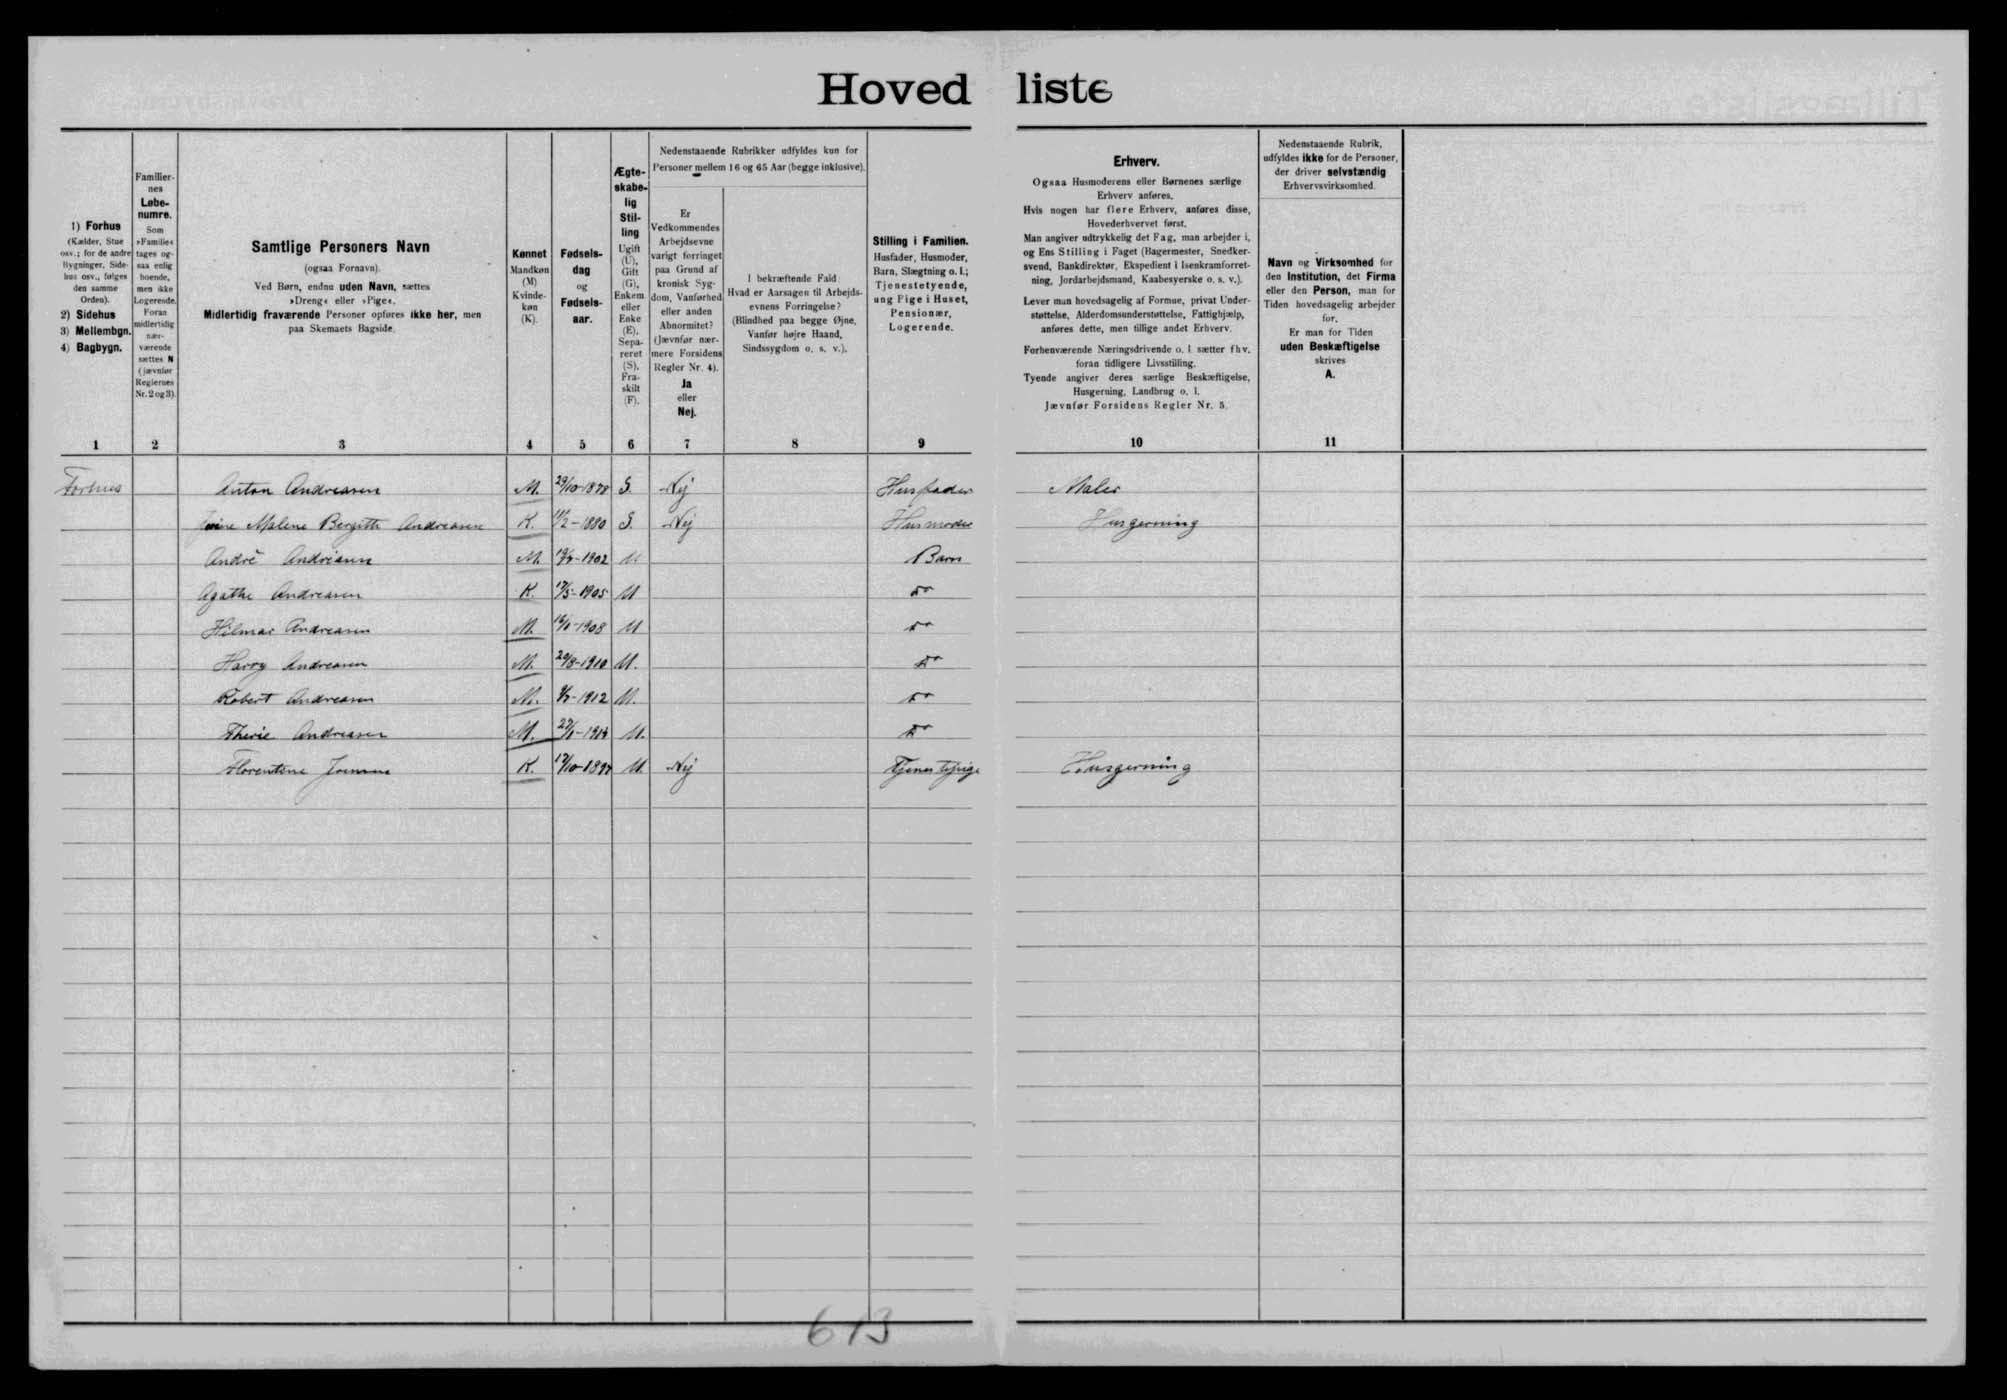 Hovedliste
1) Forhus
(Kælder, Stue
osv.; for de andre
Bygninger, Side-
hus osv., følges
den samme
Orden).
2) Sidehus
3) Mellembgn.
4) Bagbygn.
Familier-
nes
Løbe-
numre.
Som
»Familie«
tages og-
saa enlig
boende,
men ikke
Logerende.
Foran
midlertidig
nær-
værende
sættes N
(jævnfør
Reglernes
Nr. 2 og 3).
Samtlige Personers Navn
(ogsaa Fornavn).
Ved Børn, endnu uden Navn, sættes
»Dreng« eller »Pige«.
Midlertidig fraværende Personer opføres ikke her, men
paa Skemaets Bagside.
Kønnet
Mandkøn
(M)
Kvinde-
køn
(K).
Fødsels-
dag
og
Fødsels-
aar.
Ægte-
skabe-
lig
Stil-
ling
Ugift
(U),
Gift
(G),
Enkem.
eller
Enke
(E),
Sepa-
reret
(S),
Fra-
skilt
(F).
Nedenstaaende Rubrikker udfyldes kun for
Personer mellem 16 og 65 Aar (begge inklusive).
Er
Vedkommendes
Arbejdsevne
varigt forringet
paa Grund af
kronisk Syg-
dom, Vanførhed
eller anden
Abnormitet?
(Jævnfør nær-
mere Forsidens
Regler Nr. 4).
Ja
eller
Nej.
I bekræftende Fald
Hvad er Aarsagen til Arbejds-
evnens Forringelse?
(Blindhed paa begge Øjne,
Vanfør højre Haand,
Sindssygdom o. s. v.).
Stilling i Familien.
Husfader, Husmoder,
Barn, Slægtning o. l.;
Tjenestetyende,
ung Pige i Huset,
Pensionær,
Logerende.
Erhverv.
Ogsaa Husmoderens eller Børnenes særlige
Erhverv anføres.
Hvis nogen har flere Erhverv, anføres disse,
Hovederhvervet først.
Man angiver udtrykkelig det Fag, man arbejder i,
og Ens Stilling i Faget (Bagermester, Snedker-
svend, Bankdirektør, Ekspedient i Isenkramforret-
ning, Jordarbejdsmand, Kaabesyerske o. s. v.).
Lever man hovedsagelig af Formue, privat Under-
støttelse, Alderdomsunderstøttelse, Fattighjælp,
anføres dette, men tillige andet Erhverv.
Forhenværende Næringsdrivende o. l. sætter fhv.
foran tidligere Livsstilling.
Tyende angiver deres særlige Beskæftigelse,
Husgerning, Landbrug o. l.
Jævnfør Forsidens Regler Nr. 5.
Nedenstaaende Rubrik,
udfyldes ikke for de Personer,
der driver selvstændig
Erhvervsvirksomhed.
Navn og Virksomhed for
den Institution, det Firma
eller den Person, man for
Tiden hovedsagelig arbejder
for.
Er man for Tiden
uden Beskæftigelse
skrives
A.
1 2 3 4 5 6 7 8 9 10 11
Forhus Anton Andreasen M. 29/10-1878 G. Nej Husfader Maler
Malene Bergitte Andreasen K. 11/2-1880 G. Nej Husmoder Husgerning
André Andreasen M. 1902 U Barn
Agathe Andreasen K. 17/5-1905 U do
Hilmar Andreasen M. 1908 U do
Harry Andreasen M. 29/8-1910 U. do
Robert Andreasen M. 1912 U. do
Andreasen M. U. do
Florentine K. U. Nej Tjenestepige Husgerning
613